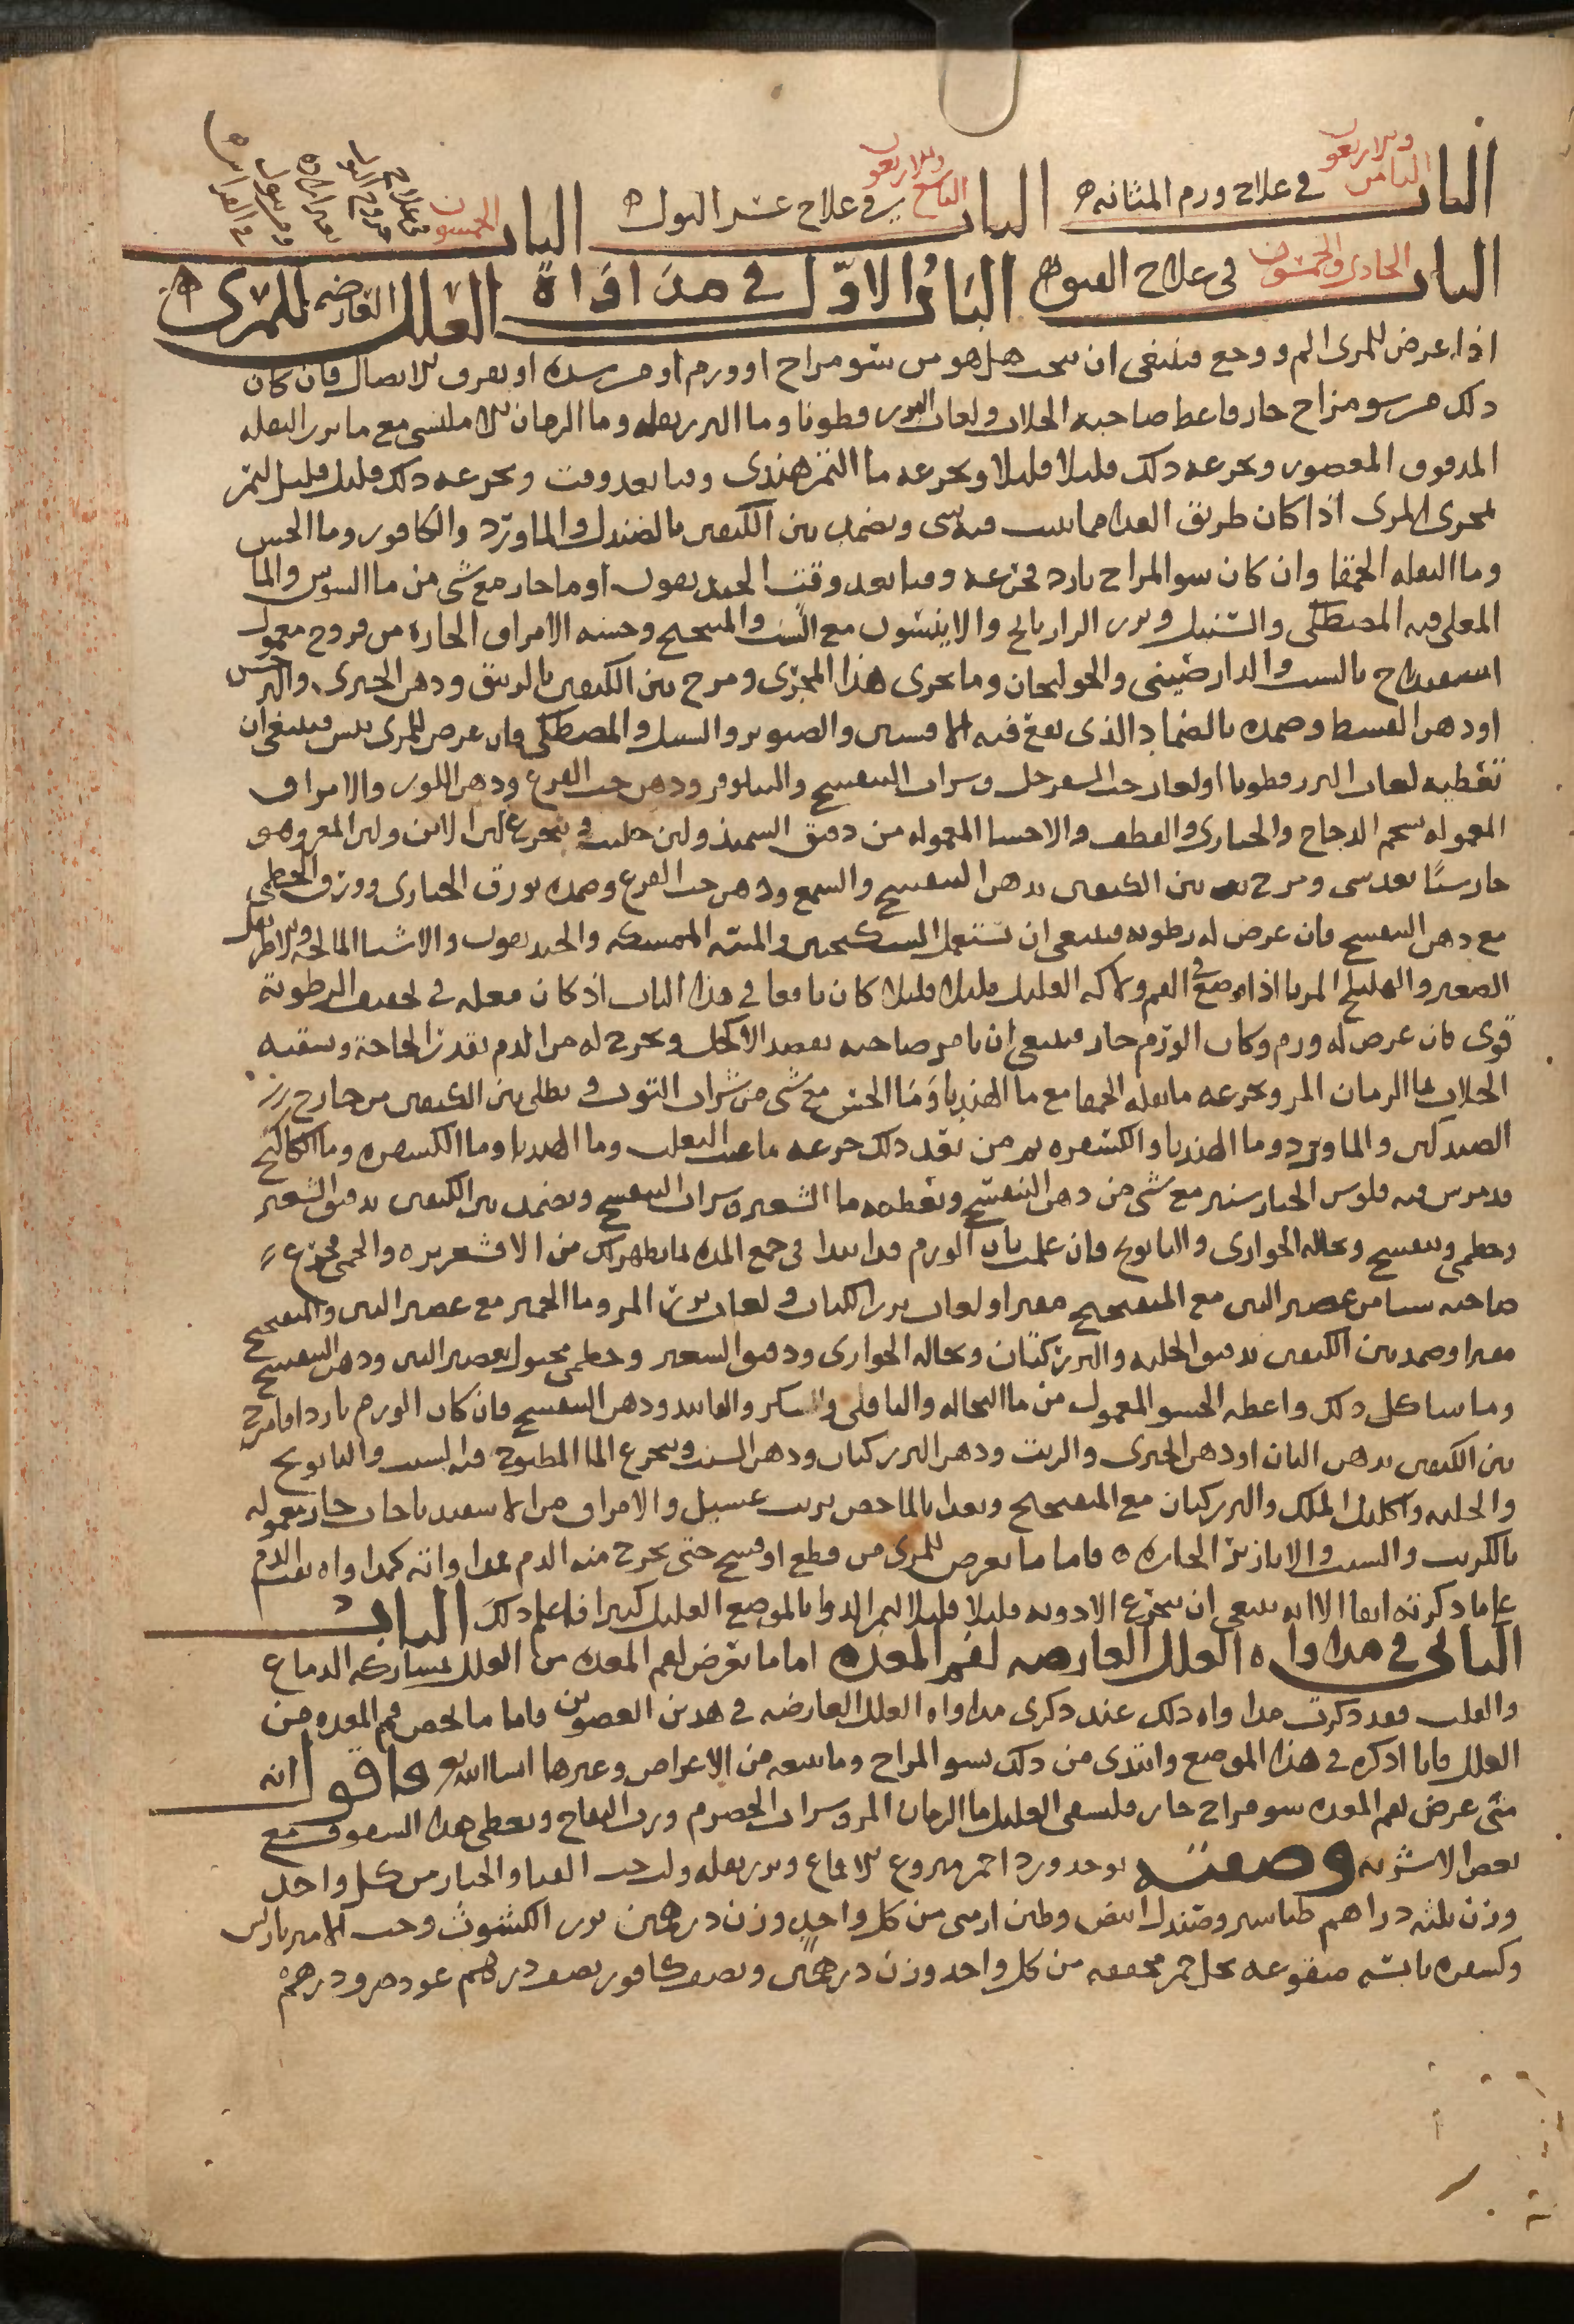 الباب الثامن والاربعون في علاج ورم المثانه الباب التاسع والاربعون في علاج عسر البول الباب الخمسون
الباب الحادي والخمسون في علاج الفتوق الباب الاول في مداواة العلل العارضه للمرى
اذا عرض للمرى الم ووجع فينبغى ان يبحث هل هو من سو مزاج او ورم او من سده او تفرق الاتصال فان كان
ذلك من سو مزاج حار فاعط صاحبه الجلاب ولعاب البزر قطونا وما البزر بقله وما الرمان الامليسى مع ما بزر البقله
المدقوق المعصور وتجرعه ذلك قليلا قليلا وتجرعه ما التمر هندى وقتا بعد وقت وتجرعه ذلك قليل قليل لتمر
بمجرى المرى اذا كان طريق الغدا مما يثبت فيه شى ويضمد بين الكتفين بالصندل والماورد والكافور وما الخس
وما البقله الحمقا وان كان سو المزاج بارد فجرعه وقتا بعد وقت الخنديقون او ما حار مع شى من ما السوس والما
المغلى فيه المصطكى والسنبل وبزر الرازيانج والاينسون مع الشبت والميبختج وحسه الامراق الحاره من فروج معمول
اسفيدباج بالشبت والدارصينى والخولنجان وما يجرى هذا المجرى ومرخ بين الكتفين بالزنبق ودهن الخيرى والنرجس
او دهن القسط وضمده بالضماد الذى يقع فيه الافسنتين والصبر والسنبل والمصطكى فان عرض للمرى يبس فينبغى ان
تعطيه لعاب البزر قطونا او لعاب حب السفرجل وشراب البنفسج والنيلوفر ودهن حب القرع ودهن اللوز والامراق
المعموله بشحم الدجاج والخبازى والقطف والاحسا المعموله من دقيق السميذ ولبن حليب ويتجرع لبن الاتن ولبن المعز وهو
حار شيا بعد شى ومرخ بين الكتفين بدهن البنفسج والشمع ودهن حب القرع وضمده بورق الخبازى وورق الخطمى
مع دهن البنفسج فان عرض له رطوبه فينبغى ان تستعمل السكنجبين والميبه الممسكه والخنديقون والاشيا المالحه والاطريفل
الصغير والهليلج المربا اذا وضع فى الفم ولاكه العليل قليلا قليلا كان نافعا فى هذا الباب اذ كان فعله فى تجفيف الرطوبة
قوى فان عرض له ورم وكان الورم حار فينبغى ان تامر صاحبه بفصد الاكحل وتخرج له من الدم بقدر الحاجة وتسقيه
الجلاب بما الرمان المر وتجرعه ما بقله الحمقا مع ما الهندبا وما الخس مع شى من شراب التوت ويطلى بين الكتفين من خارج
الصندلين والماورد وما الهندبا والكسفره ثم من بعد ذلك جرعه ما عنب الثعلب وما الهندبا وما الكسفره وما الكاكنج
قد مرس فيه فلوس الخيار شنبر مع شى من دهن البنفسج وتعطيه ما الشعير وشراب البنفسج ويضمد بين الكتفين بدقيق الشعير
وخطمى وبنفسج ونخاله الحوارى والبابونج فان علمت بان الورم قد ابتدا فى جمع المده لما يظهر لك من الاقشعريره والحمى فجرع
صاحبه شيا من عصير التين مع الميبختج مفتر او لعاب بزر الكتان ولعاب بزر المر وما الخمير مع عصير التين والميبختج
مفترا وضمد بين الكتفين بدقيق الحلبه والبزر كتان ونخاله الحوارى ودقيق الشعير وخطمى مجبول بعصير التين ودهن البنفسج
وما شاكل ذلك واعطه الحسو المعمول من ما النخاله والباقلى والسكر والفانيد ودهن البنفسج فان كان الورم باردا فامرخ
بين الكتفين بدهن البان او دهن الخيرى والزيت ودهن البزر كتان ودهن الشبت ويجرع الما المطبوخ فيه الشبت والبابونج
والحلبه واكليل الملك والبزر كتان مع الميبختج ويغدا بالما حمص بزيت غسيل والامراق من الاسفيدباجات حار معموله
بالكريت والشبت والابازير الحاره فاما ما يعرض للمرى من قطع او فسخ حتى يخرج منه الدم فمداواته كمداواه نفث الدم
على ما ذكرته انفا الا انه ينبغى ان يتجرع الادويه قليلا قليلا ليمر الدوا بالموضع العليل كثيرا فاعلم ذلك الباب
الثانى فى مداواه العلل العارضه لفم المعده اما ما يعرض لفم المعده من العلل بمشاركه الدماغ
والقلب فقد ذكرت مداواه ذلك عند ذكرى مداواه العلل العارضه فى هذين العضوين فاما ما يخص فم المعده من
العلل فانا اذكره فى هذا الموضع وابتدى من ذلك بسو المزاج وما يتبعه من الاعراض وغيرها ان شا الله تع فاقول انه
متى عرض لفم المعده سو مزاج حار فليسقى العليل ما الرمان المر وشراب الحصرم ورب التفاح ويعطى هذا السفوف مع
بعض الاشربه وصفته يوخذ ورد احمر منزوع الاقماع وبزر بقله ولب حب القثا والخيار من كل واحد
وزن ثلثه دراهم طباشير وصندل ابيض وطين ارمنى من كل واحد وزن درهمين بزر الكشوث وحب الامير باريس
وكسفره يابسه منقوعه بخل خمر مجففه من كل واحد وزن درهمين ونصف كافور نصف درهم عود صرف درهم